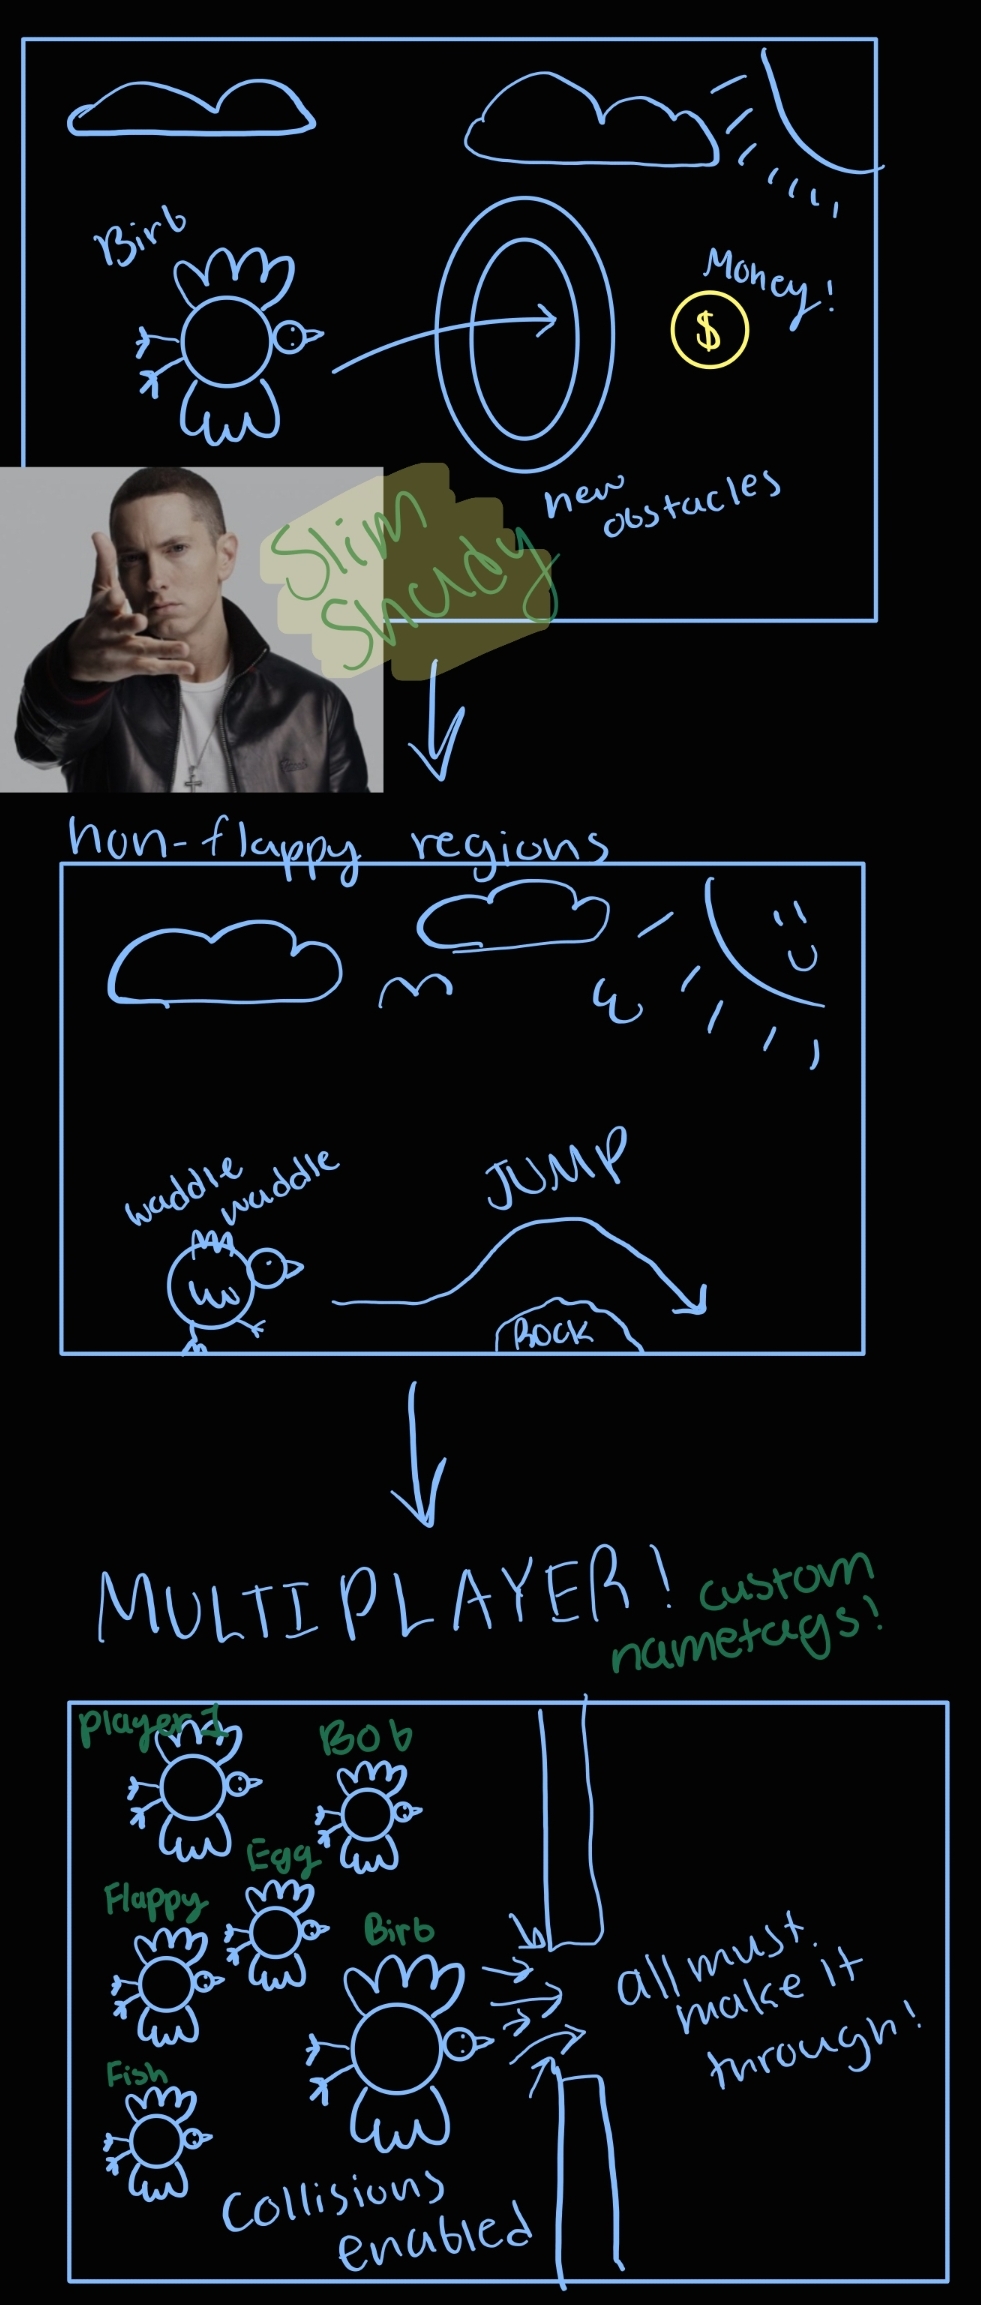 Birb
Money!
$
new
obstacles
Slim
Shady
non-flappy regions
waddle
waddle
JUMP
ROCK
MULTIPLAYER!
custom
nametags!
player 1
Bob
Egg
Flappy
Birb
Fish
all must
make it
through!
Collisions
enabled